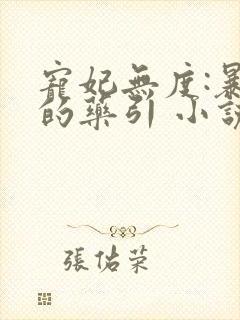 寵妃無度:暴
的藥引 小說
張佑荣